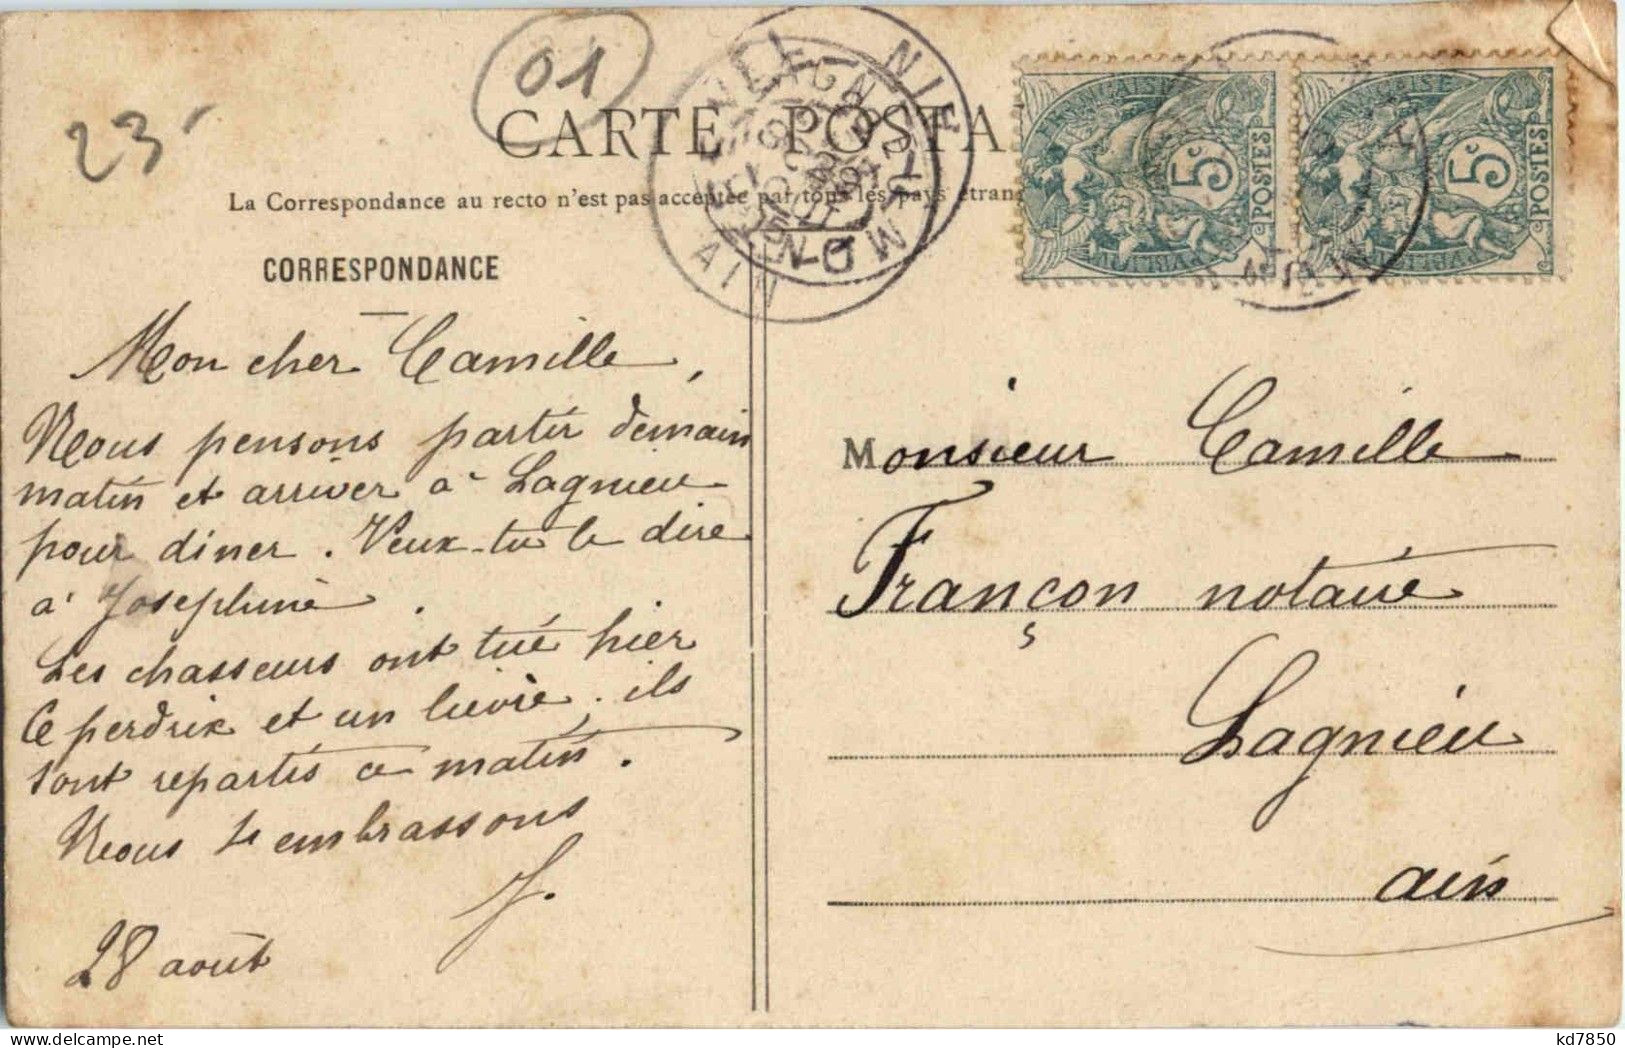 01
23
CARTE POSTA
La Correspondance au recto n'est pas acceptée par tous les pays étran
CORRESPONDANCE
Mon cher Camille,
Nous pensons partir demain
matin et arriver à Lagnieu
pour diner. Veux-tu le dire
à Josephine.
Les chasseurs ont tué hier
6 perdrix et un lievre, ils
sont repartis ce matin.
Nous t'embrassons
J.
28 août
FRANÇAISE
5c
POSTES
FRANÇAISE
5c
POSTES
AIN
Monsieur Camille
Françon notaire
Lagnieu
ain
kd7850